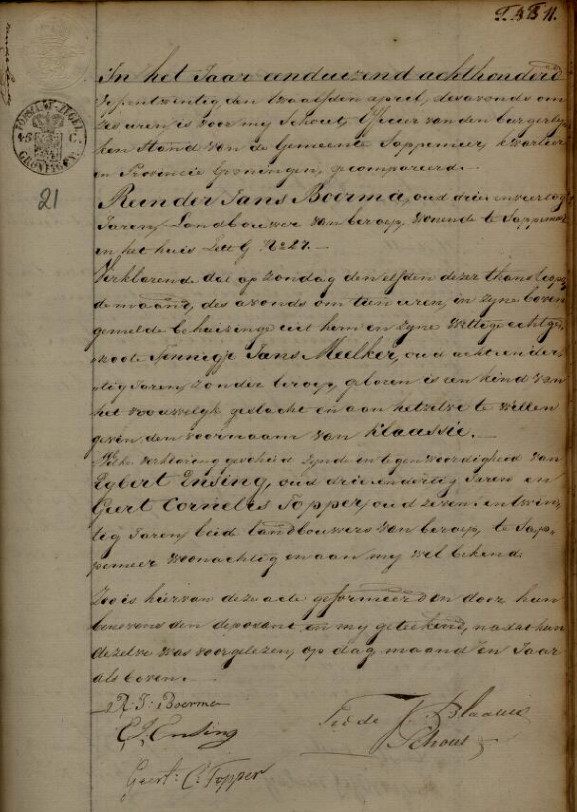 In het Jaar eenduizend achthonderd
den twaalfden april, des avonds om
zes uren, is voor my Schout, Officier van den burgerly
ken stand van de Gemeente Sappemeer, kwartier
en Provincie Groningen, gecompareerd.
Reinder Jans Boerma, oud drie en veertig
Jaren, Landbouwer van beroep, wonende te Sappemeer
in het huis Lett G No 27.
Verklarende dat op zondag den elfden dezer thans loopen
de maand, des avonds om tien uren, in zyne boven
gemelde behuizinge uit hem en zyne Wettige echtge
noote Jans Meelker, oud acht en der
tig Jaren, zonder beroep, geboren is een kind van
het vrouwelyk geslacht en aan hetzelve te willen
geven den voornaam van Klaassie.
verklaring geschied zynde in tegenwoordigheid van
Egbert Ensing, oud drie en dertig Jaren en
Geert Cornelis Topper, oud zeven en twin
tig Jaren, beid Landbouwers van beroep, te Sap
pemeer woonachtig en aan my wel bekend
Zoo is hiervan deze acte geformeerd en door hun
benevens den deposant en my geteekend, nadat hun
dezelve was voorgelezen, op dag maand en Jaar
als boven.
R. J. Boerma
E Ensing
Geert: C: Topper
Schout
GRONINGEN
21